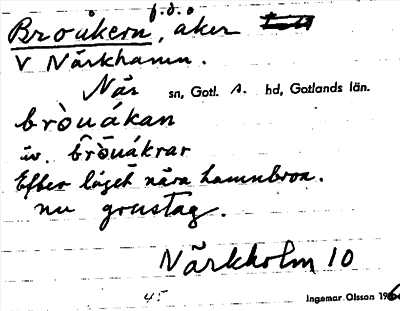 f.d.o
Broåkern, åker
V Närkhamn.
När sn, Gotl. s. hd, Gotlands län.
bròuákan
Efter läget nära hamnbroa.
nu grustag.
Närkholm 10
45
Ingemar Olsson 196